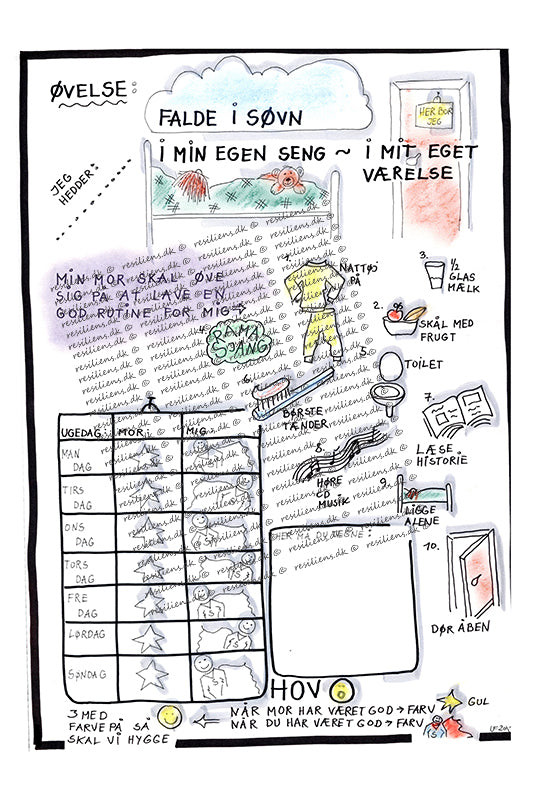 ØVELSE:
FALDE I SØVN
HER BOR
JEG
I MIN EGEN SENG ~ I MIT EGET
VÆRELSE
JEG
HEDDER:
MIN MOR SKAL ØVE
SIG PÅ AT LAVE EN
GOD RUTINE FOR MIG:
1.
NATTØJ
PÅ
3.
1/2
GLAS
MÆLK
2.
SKÅL MED
FRUGT
4.
RAMA
SJANG
5.
TOILET
6.
BØRSTE
TÆNDER
7.
LÆSE
HISTORIE
8.
HØRE
CD
MUSIK
9.
LIGGE
ALENE
10.
DØR ÅBEN
UGEDAG: MOR: MIG:
MAN
DAG
TIRS
DAG
ONS
DAG
TORS
DAG
FRE
DAG
LØRDAG
SØNDAG
HER MÅ DU TEGNE:
HOV
3 MED
FARVE PÅ SÅ
SKAL VI HYGGE
NÅR MOR HAR VÆRET GOD → FARV GUL
NÅR DU HAR VÆRET GOD → FARV
resiliens.dk ©